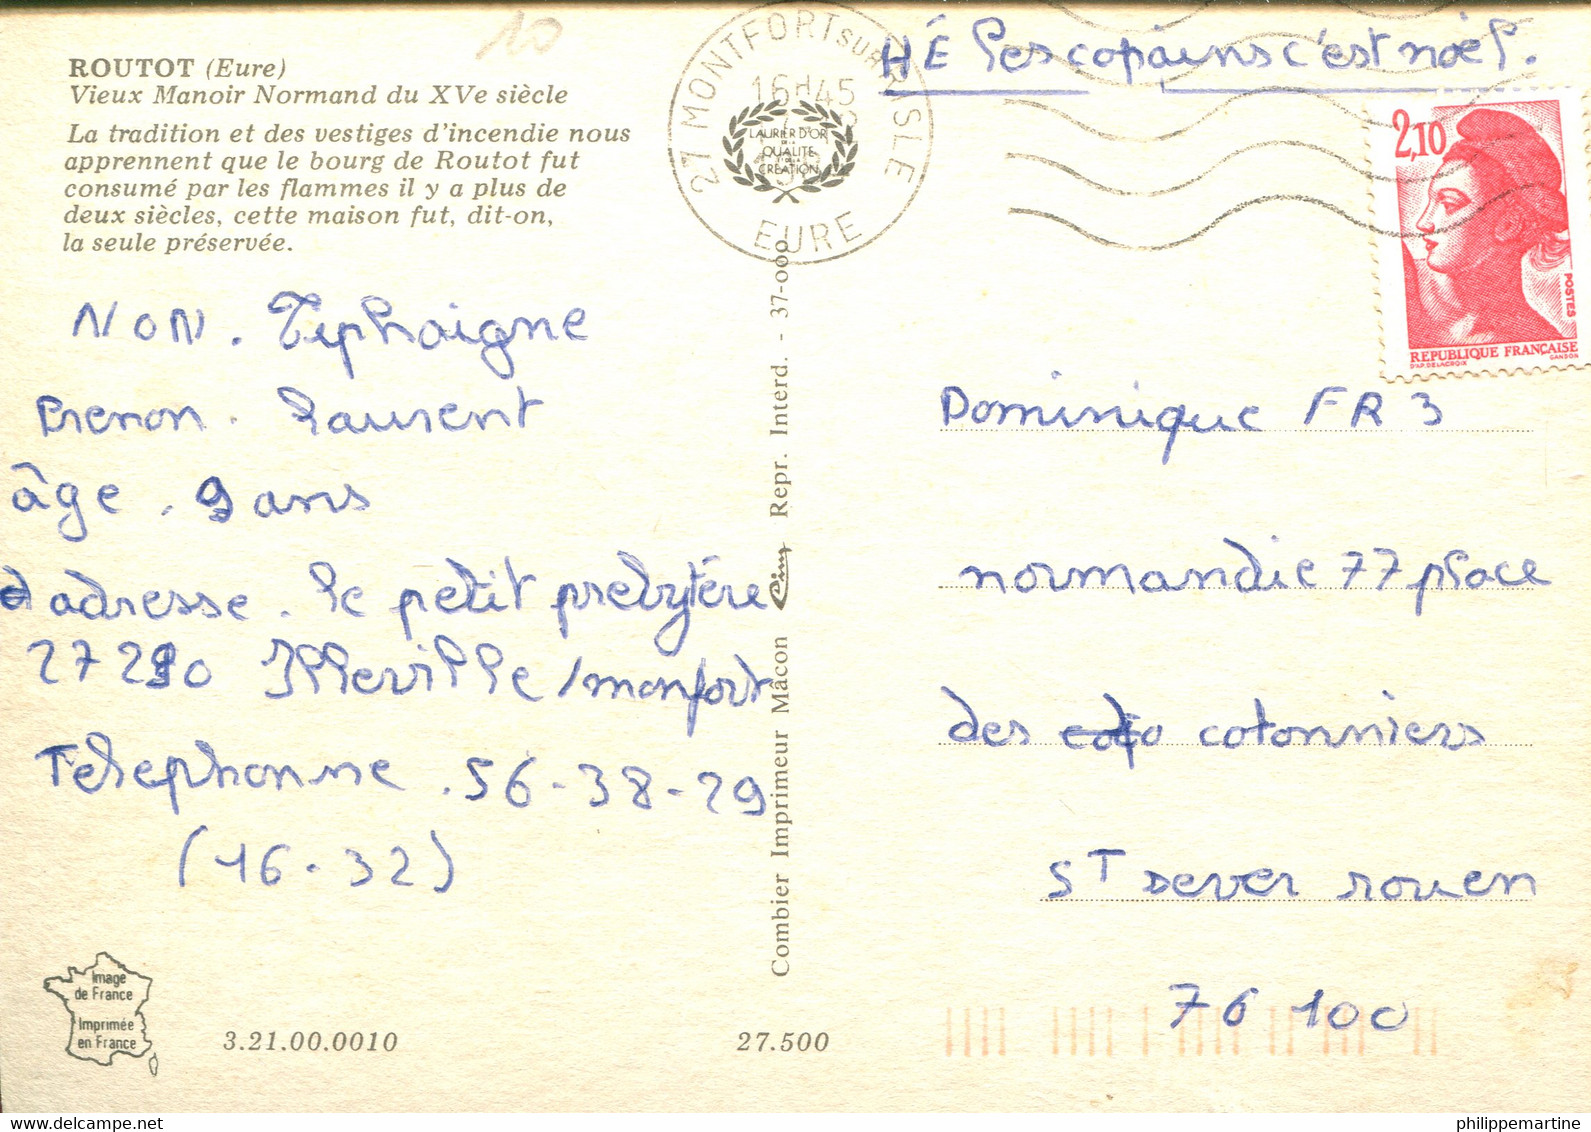 10
ROUTOT (Eure)
Vieux Manoir Normand du XVe siècle
La tradition et des vestiges d'incendie nous
apprennent que le bourg de Routot fut
consumé par les flammes il y a plus de
deux siècles, cette maison fut, dit-on,
la seule préservée.
27 MONTFORT SUR RISLE
16H45
EURE
LAURIER D'OR
DE LA
QUALITE
ET DE LA
CREATION
HÉ les copains c'est noël.
2,10
POSTES
REPUBLIQUE FRANÇAISE
D'AP. DELACROIX GANDON
NON. Tiphaigne
Prenon. laurent
âge. 9 ans
adresse. le petit prebytére
27290 Illeville/monfort
Telephonne. 56-38-29
(16-32)
Combier Imprimeur Mâcon Cim Repr. Interd. - 37-000
Dominique FR3
normandie 77 place
des cotonniers
ST sever rouen
76 100
Image
de France
Imprimée
en France
3.21.00.0010
27.500
philippemartine